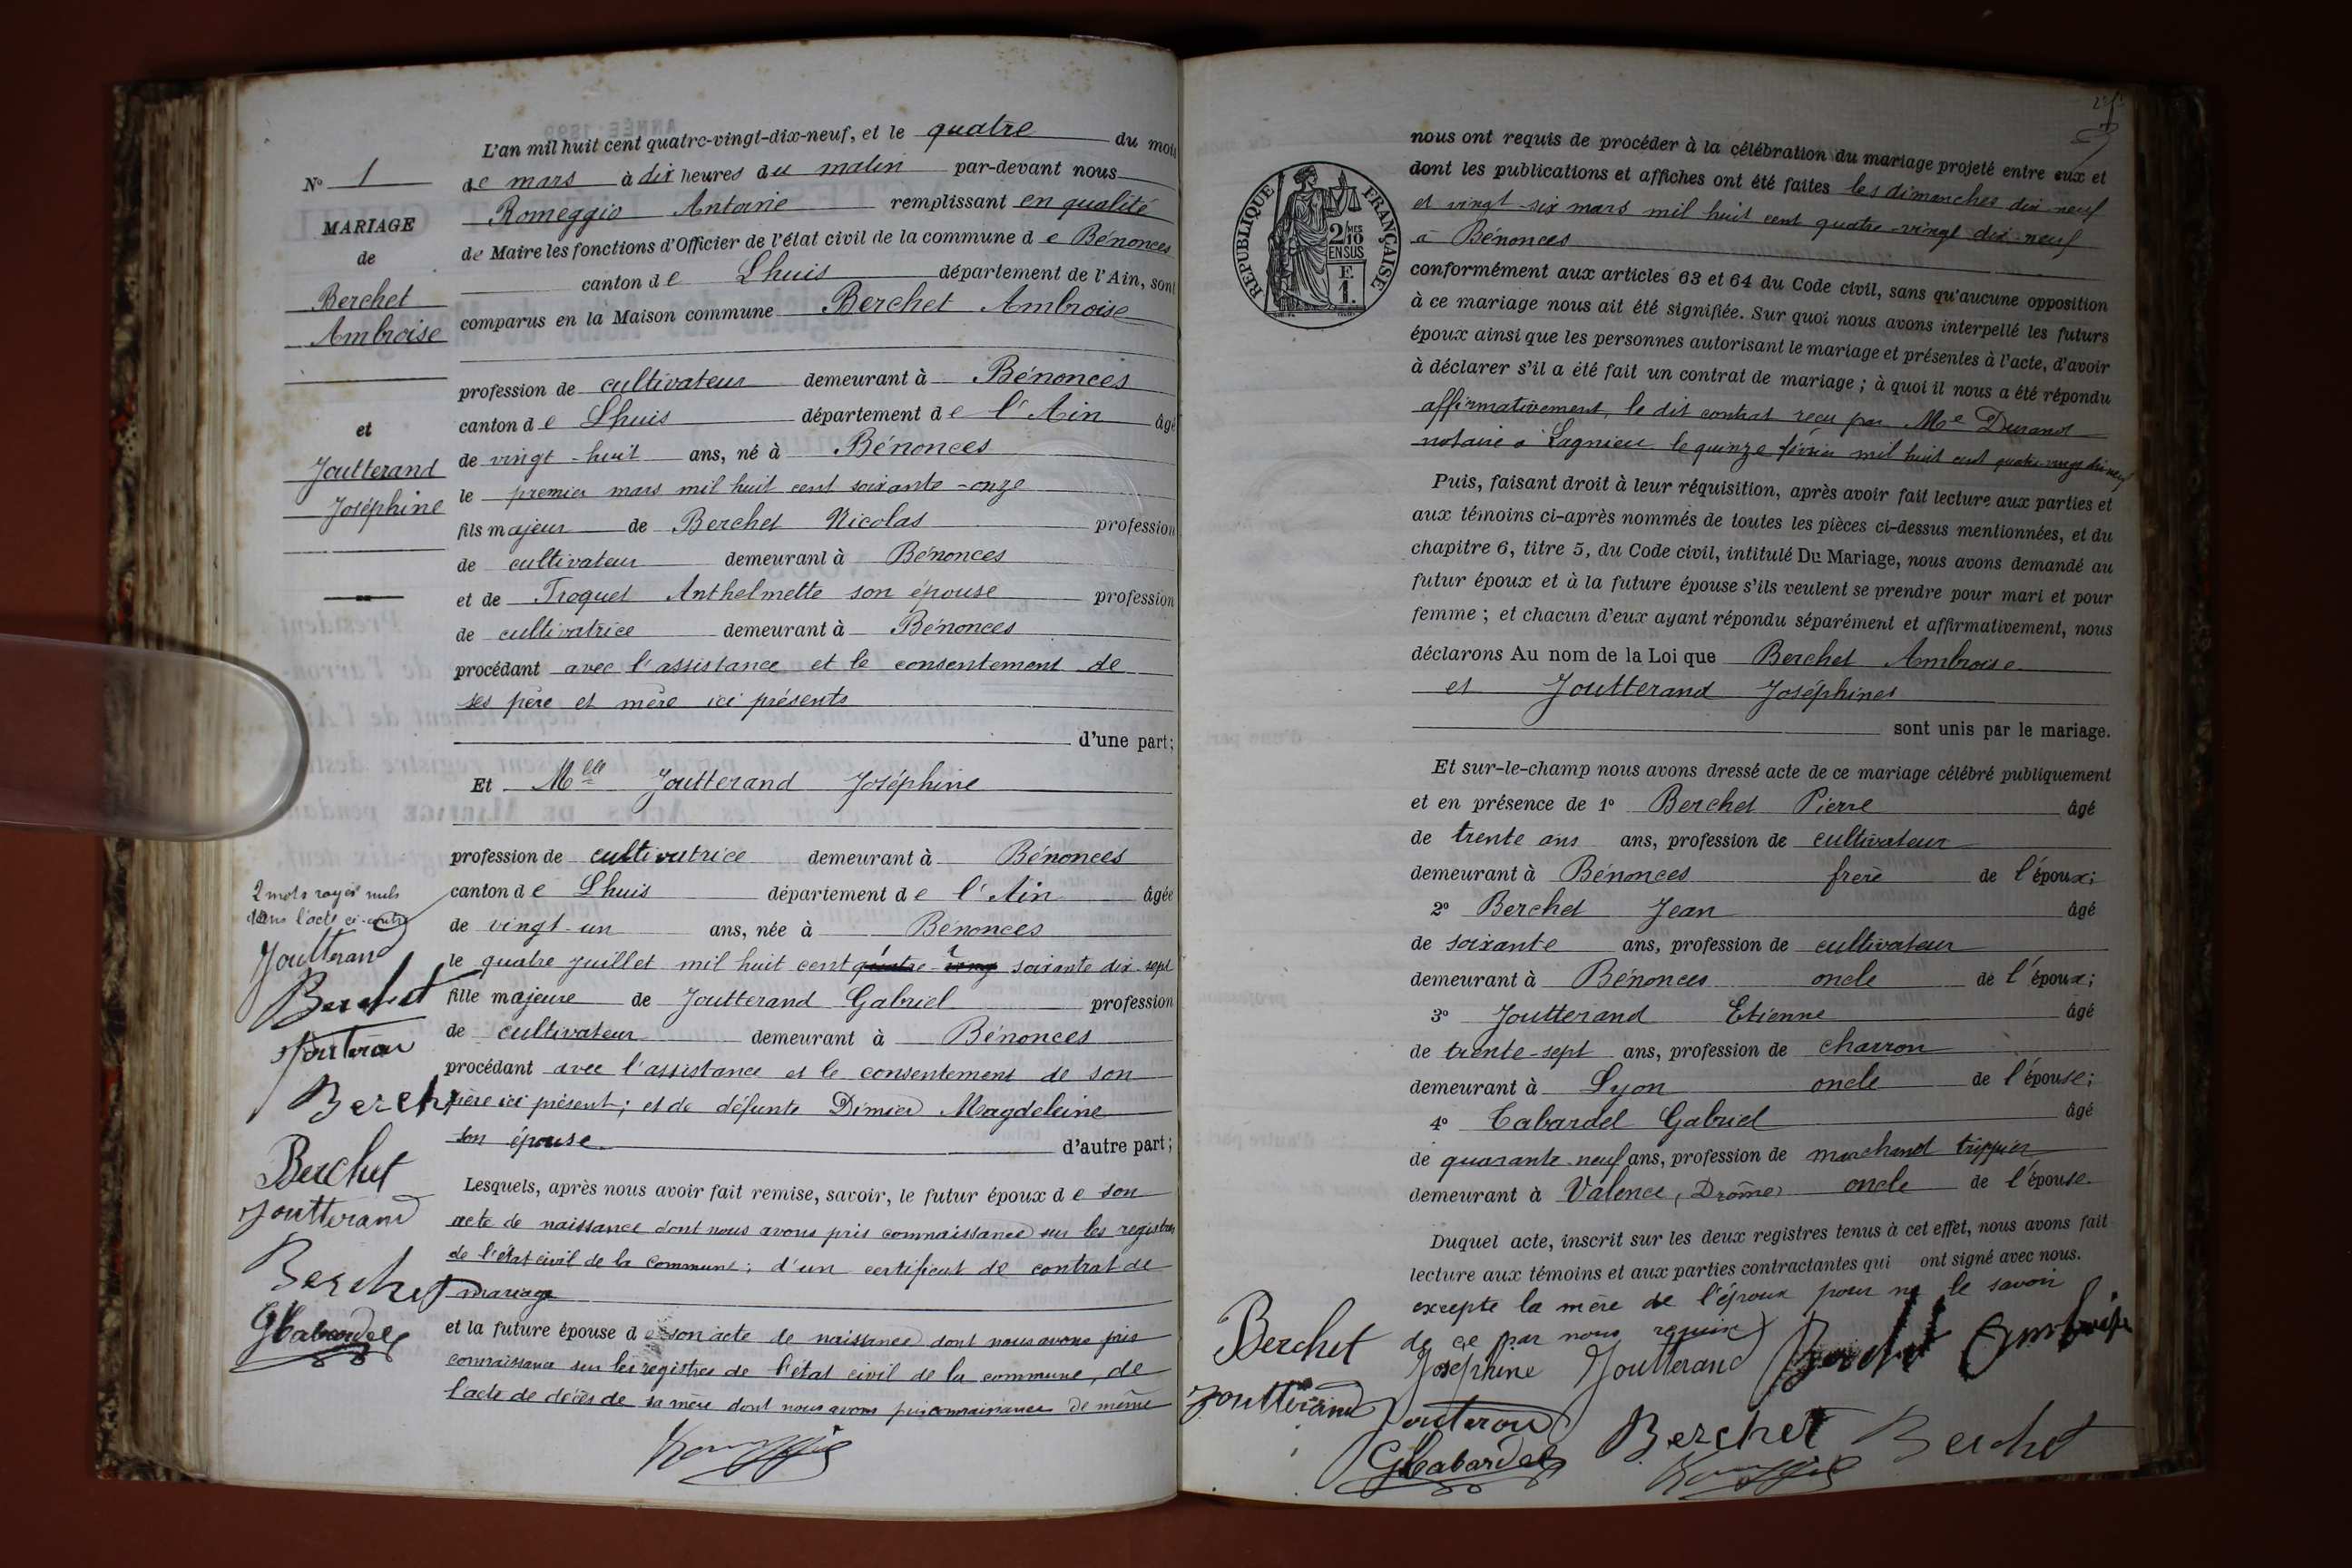 L'an mil huit cent quatre-vingt-dix-neuf, et le quatre du mois
de mars à dix heures du matin par-devant nous
Romeggio Antoine remplissant en qualité
de Maire les fonctions d'Officier de l'état civil de la commune d e Bénonces
canton d e Lhuis département de l'Ain, sont
comparus en la Maison commune Berchet Ambroise
profession de cultivateur demeurant à Bénonces
canton d e Lhuis département d e l'Ain âgé
de vingt-huit ans, né à Bénonces
le premier mars mil huit cent soixante-onze
fils majeur de Berchet Nicolas profession
de cultivateur demeurant à Bénonces
et de Troquet Anthelmette son épouse profession
de cultivatrice demeurant à Bénonces
procédant avec l'assistance et le consentement de
ses père et mère ici présents
d'une part;
Et Melle Joutterand Joséphine
profession de cultivatrice demeurant à Bénonces
canton d e Lhuis département d e l'Ain âgée
de vingt-un ans, née à Bénonces
le quatre juillet mil huit cent quatre-vingt soixante dix-sept
fille majeure de Joutterand Gabriel profession
de cultivateur demeurant à Bénonces
procédant avec l'assistance et le consentement de son
père ici présent; et de défunte Dimier Magdeleine
son épouse d'autre part;
Lesquels, après nous avoir fait remise, savoir, le futur époux d e son
acte de naissance dont nous avons pris connaissance sur les registres
de l'état civil de la commune; d'un certificat de contrat de
mariage
et la future épouse d e son acte de naissance dont nous avons pris
connaissance sur les registres de l'état civil de la commune, de
l'acte de décès de sa mère dont nous avons pris connaissance de même
N° 1
MARIAGE
de
Berchet
Ambroise
et
Joutterand
Joséphine
2 mots rayés nuls
dans l'acte ci-contre
Joutterand
Berchet
Jouterou
Berchet
Berchet
Joutterand
Berchet
GTabardel
RÉPUBLIQUE FRANÇAISE
2/10 MES
EN SUS
F.
1.
nous ont requis de procéder à la célébration du mariage projeté entre eux et
dont les publications et affiches ont été faites les dimanches dix neuf
et vingt-six mars mil huit cent quatre-vingt dix-neuf
à Bénonces
conformément aux articles 63 et 64 du Code civil, sans qu'aucune opposition
à ce mariage nous ait été signifiée. Sur quoi nous avons interpellé les futurs
époux ainsi que les personnes autorisant le mariage et présentes à l'acte, d'avoir
à déclarer s'il a été fait un contrat de mariage ; à quoi il nous a été répondu
affirmativement, le dit contrat reçu par Me Durand
notaire à Lagnieu le quinze février mil huit cent quatre-vingt dix-neuf
Puis, faisant droit à leur réquisition, après avoir fait lecture aux parties et
aux témoins ci-après nommés de toutes les pièces ci-dessus mentionnées, et du
chapitre 6, titre 5, du Code civil, intitulé Du Mariage, nous avons demandé au
futur époux et à la future épouse s'ils veulent se prendre pour mari et pour
femme ; et chacun d'eux ayant répondu séparément et affirmativement, nous
déclarons Au nom de la Loi que Berchet Ambroise
et Joutterand Joséphines
sont unis par le mariage.
Et sur-le-champ nous avons dressé acte de ce mariage célébré publiquement
et en présence de 1° Berchet Pierre âgé
de trente ans ans, profession de cultivateur
demeurant à Bénonces frère de l'époux;
2° Berchet Jean âgé
de soixante ans, profession de cultivateur
demeurant à Bénonces oncle de l'époux;
3° Joutterand Etienne âgé
de trente-sept ans, profession de charron
demeurant à Lyon oncle de l'épouse;
4° Tabardel Gabriel âgé
de quarante-neuf ans, profession de marchand trippier
demeurant à Valence, Drôme oncle de l'épouse.
Duquel acte, inscrit sur les deux registres tenus à cet effet, nous avons fait
lecture aux témoins et aux parties contractantes qui ont signé avec nous.
excepté la mère de l'époux pour ne le savoir
de ce par nous requise
Berchet Joséphine Joutterand Berchet Ambroise
Joutterand Jouterou Berchet Berchet
GTabardel